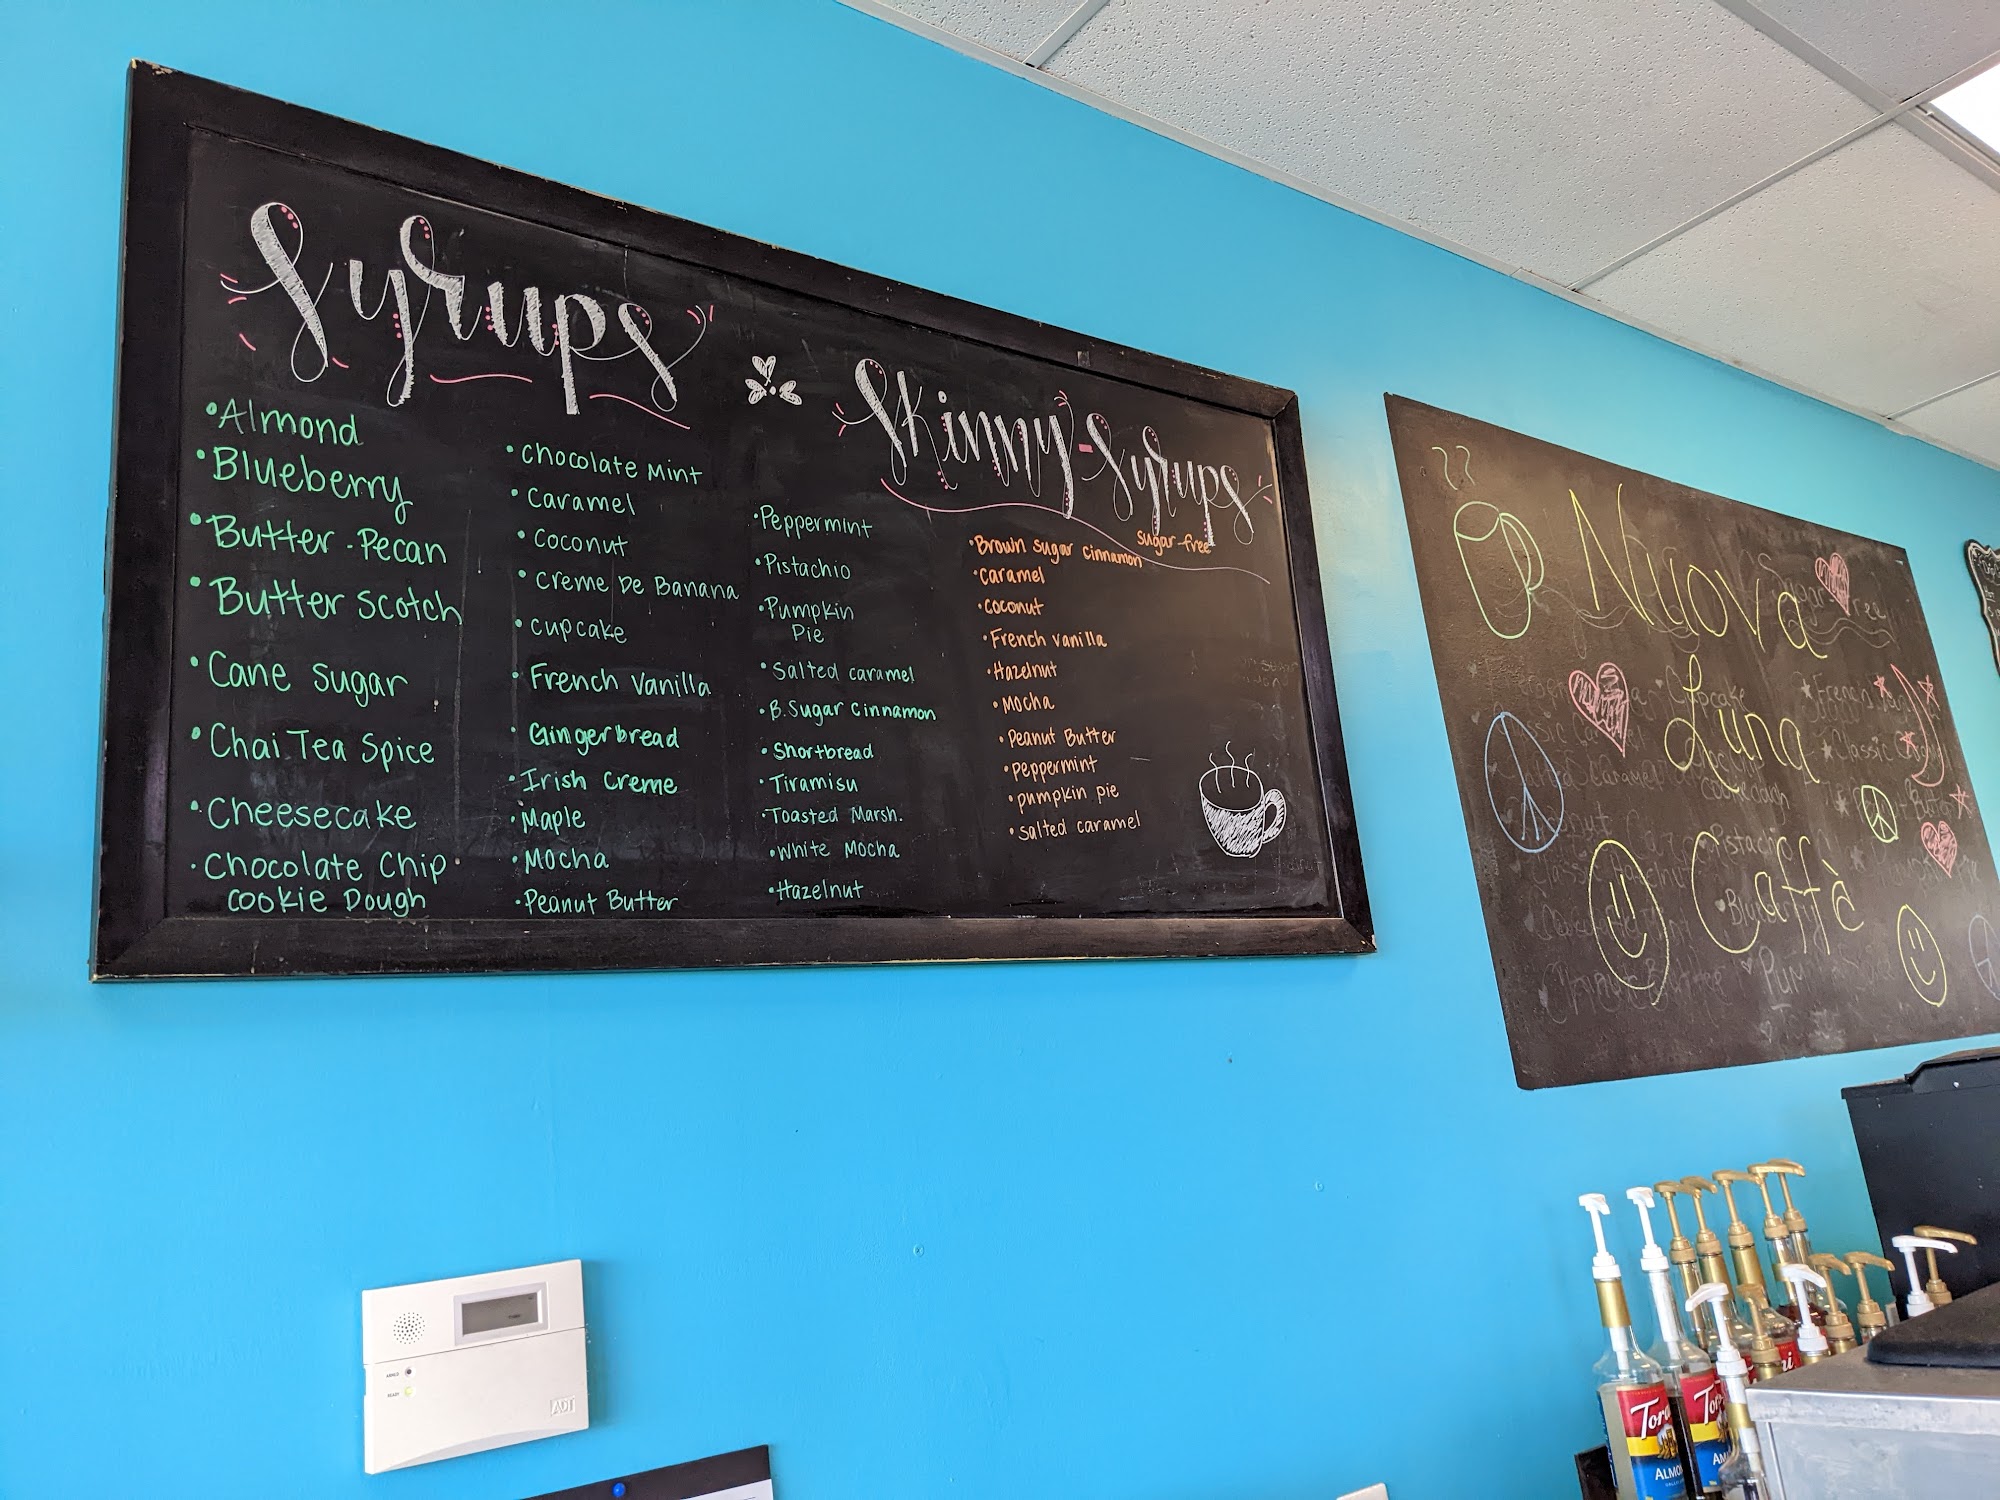 Syrups
• Almond
• Blueberry
• Butter-Pecan
• Butter scotch
• Cane sugar
• Chai Tea Spice
• Cheesecake
• Chocolate Chip
cookie Dough
• chocolate Mint
• Caramel
• Coconut
• creme De Banana
• cupcake
• French Vanilla
• Gingerbread
• Irish Creme
• Maple
• Mocha
• Peanut Butter
• Peppermint
• Pistachio
• Pumpkin
Pie
• Salted caramel
• B. Sugar cinnamon
• Shortbread
• Tiramisu
• Toasted Marsh.
• White Mocha
• Hazelnut
Skinny-Syrups
sugar-free
• Brown sugar cinnamon
• Caramel
• Coconut
• French vanilla
• Hazelnut
• Mocha
• Peanut Butter
• Peppermint
• pumpkin pie
• salted caramel
Nuova
Luna
Caffè
ARMED
READY
ADT
Torani
ALMO